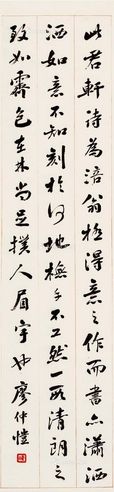 此君軒詩為涪翁極得意之作而書亦瀟洒
洒如意不知刻於何地橅手不工然一段清朗之
致如霽色在林尚足撲人眉宇也廖仲愷